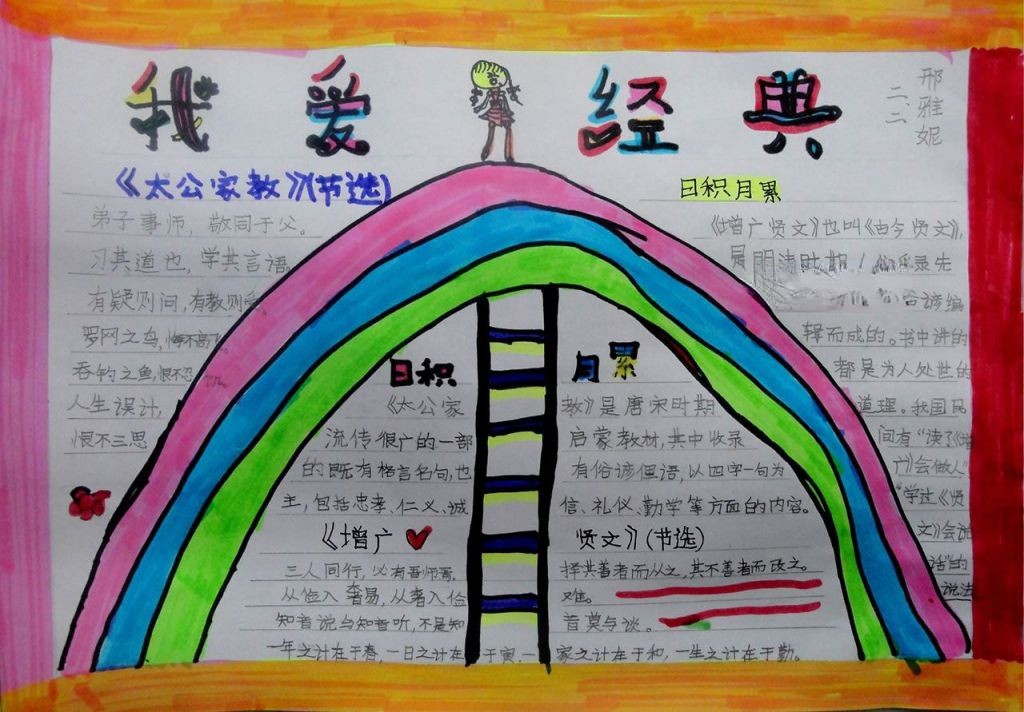 我爱经典
邢雅妮
二、二
《太公家教》(节选)
弟子事师，敬同于父。
习其道也，学其言语。
有疑则问，有教则受
罗网之鸟，悔不高飞。
吞钓之鱼，恨不忍饥。
人生误计，
恨不三思
日积月累
《增广贤文》也叫《古今贤文》，
是明清时期 采录先
谚编
辑而成的。书中讲的
都是为人处世的
道理。我国民
间有“读了《增
广》会做人”
“学过《贤
文》会说
话”的
说法
日积 月累
《太公家 教》是唐宋时期
流传很广的一部 启蒙教材，其中收录
的既有格言名句，也 有俗谚俚语，以四字一句为
主，包括忠孝、仁义、诚 信、礼仪、勤学等方面的内容。
《增广 贤文》(节选)
三人同行，必有吾师焉， 择其善者而从之，其不善者而改之。
从俭入奢易，从奢入俭 难。
知音说与知音听，不是知 音莫与谈。
一年之计在于春，一日之计在于寅，一家之计在于和，一生之计在于勤。